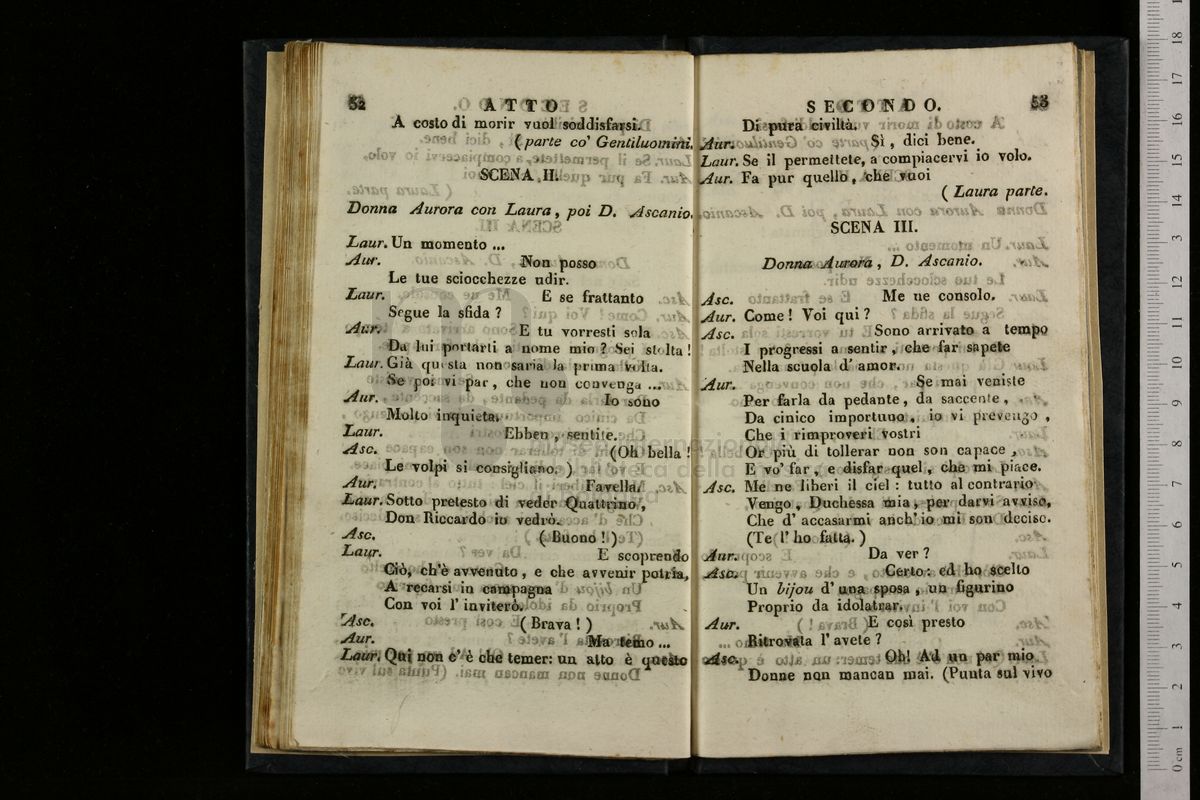 52 ATTO
A costo di morir vuol soddisfarsi.
(parte co' Gentiluomini.
SCENA II.
Donna Aurora con Laura, poi D. Ascanio.
Laur. Un momento ...
Aur. Non posso
Le tue sciocchezze udir.
Laur. E se frattanto
Segue la sfida?
Aur. E tu vorresti sola
Da lui portarti a nome mio? Sei stolta!
Laur. Già questa non saria la prima volta.
Se poi vi par, che non convenga ...
Aur. Io sono
Molto inquieta.
Laur. Ebben, sentite.
Asc. (Oh bella!
Le volpi si consigliano.)
Aur. Favella.
Laur. Sotto pretesto di veder Quattrino,
Don Riccardo io vedrò.
Asc. (Buono!)
Laur. E scoprendo
Ciò, ch'è avvenuto, e che avvenir potria,
A recarsi in campagna
Con voi l'inviterò.
Asc. (Brava!)
Aur. Ma temo ...
Laur. Qui non c'è che temer: un atto è questo
SECONDO. 53
Di pura civiltà.
Aur. Sì, dici bene.
Laur. Se il permettete, a compiacervi io volo.
Aur. Fa pur quello, che vuoi
(Laura parte.
SCENA III.
Donna Aurora, D. Ascanio.
Asc. Me ne consolo.
Aur. Come! Voi qui?
Asc. Sono arrivato a tempo
I progressi a sentir, che far sapete
Nella scuola d'amor.
Aur. Se mai veniste
Per farla da pedante, da saccente,
Da cinico importuno, io vi prevengo,
Che i rimproveri vostri
Or più di tollerar non son capace,
E vo' far, e disfar quel, che mi piace.
Asc. Me ne liberi il ciel: tutto al contrario
Vengo, Duchessa mia, per darvi avviso,
Che d'accasarmi anch'io mi son deciso.
(Te l'ho fatta.)
Aur. Da ver?
Asc. Certo: ed ho scelto
Un bijou d'una sposa, un figurino
Proprio da idolatrar.
Aur. E così presto
Ritrovata l'avete?
Asc. Oh! Ad un par mio
Donne non mancan mai. (Punta sul vivo